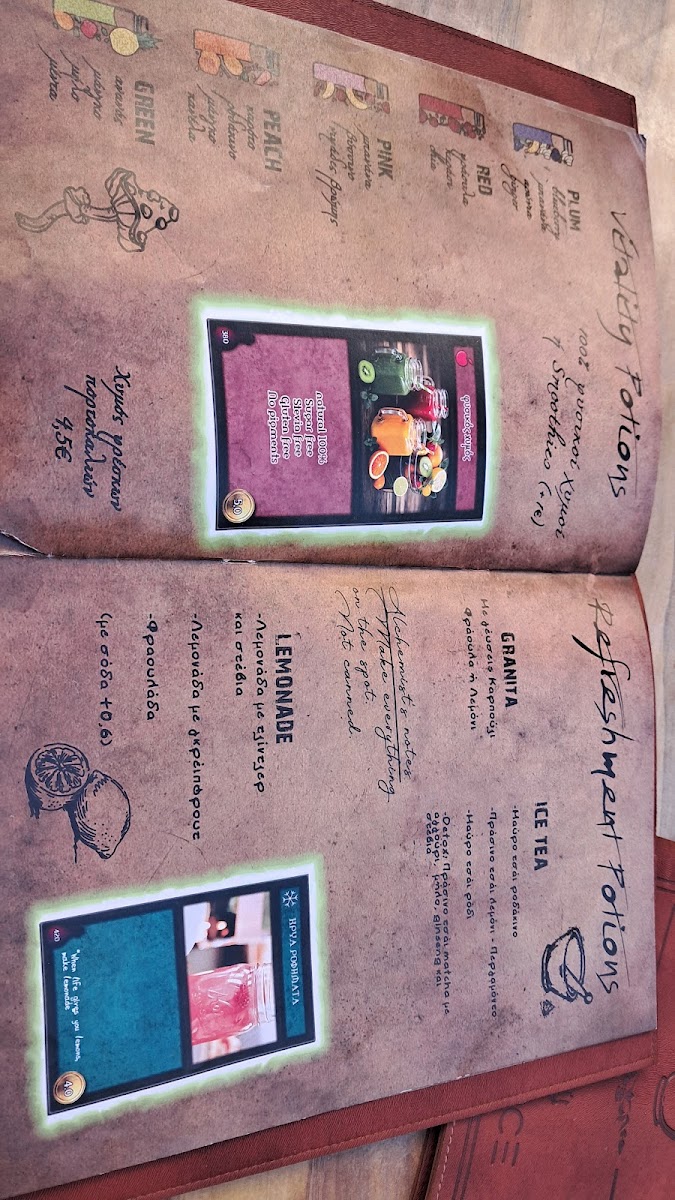 Vitality Potions
100% φυσικοί χυμοί
& Smoothies (+1€)
PLUM
blueberry
μπανάνα
ginger
RED
φράουλα
PINK
μπανάνα
βρώμης
PEACH
μάνγκο
GREEN
ανανάς
μήλο
μέντα
φυσικός χυμός
natural 100%
Sugar free
Stevia free
Gluten free
No pigments
380
5,0
Χυμός φρέσκων
πορτοκαλιών
4,5€
Refreshment Potions
GRANITA
Με γεύσεις Καρπούζι
Φράουλα ή Λεμόνι
ICE TEA
-Μαύρο τσάι ροδάκινο
-Πράσινο τσάι λεμόνι - Περγαμόντο
-Μαύρο τσάι ρόδι
-Detox: Πράσινο τσάι matcha με
αγγούρι, μήλο, ginseng και
στέβια
Alchemist's notes
Make everything
on the spot.
Not canned.
LEMONADE
-Λεμονάδα με τζίντζερ
και στέβια
-Λεμονάδα με γκρέιπφρουτ
-Φραουλάδα
(με σόδα +0,6)
ΚΡΥΑ ΡΟΦΗΜΑΤΑ
"When life gives you lemons,
make lemonade
420
4,0